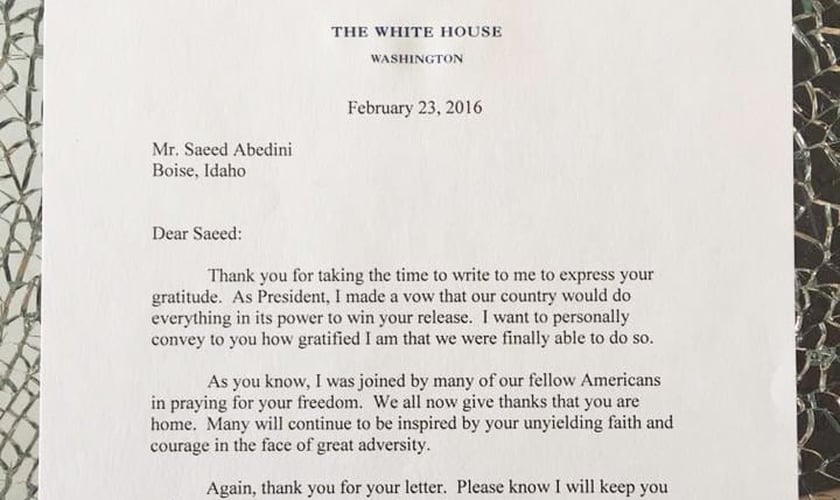 THE WHITE HOUSE
WASHINGTON
February 23, 2016
Mr. Saeed Abedini
Boise, Idaho
Dear Saeed:
Thank you for taking the time to write to me to express your
gratitude. As President, I made a vow that our country would do
everything in its power to win your release. I want to personally
convey to you how gratified I am that we were finally able to do so.
As you know, I was joined by many of our fellow Americans
in praying for your freedom. We all now give thanks that you are
home. Many will continue to be inspired by your unyielding faith and
courage in the face of great adversity.
Again, thank you for your letter. Please know I will keep you